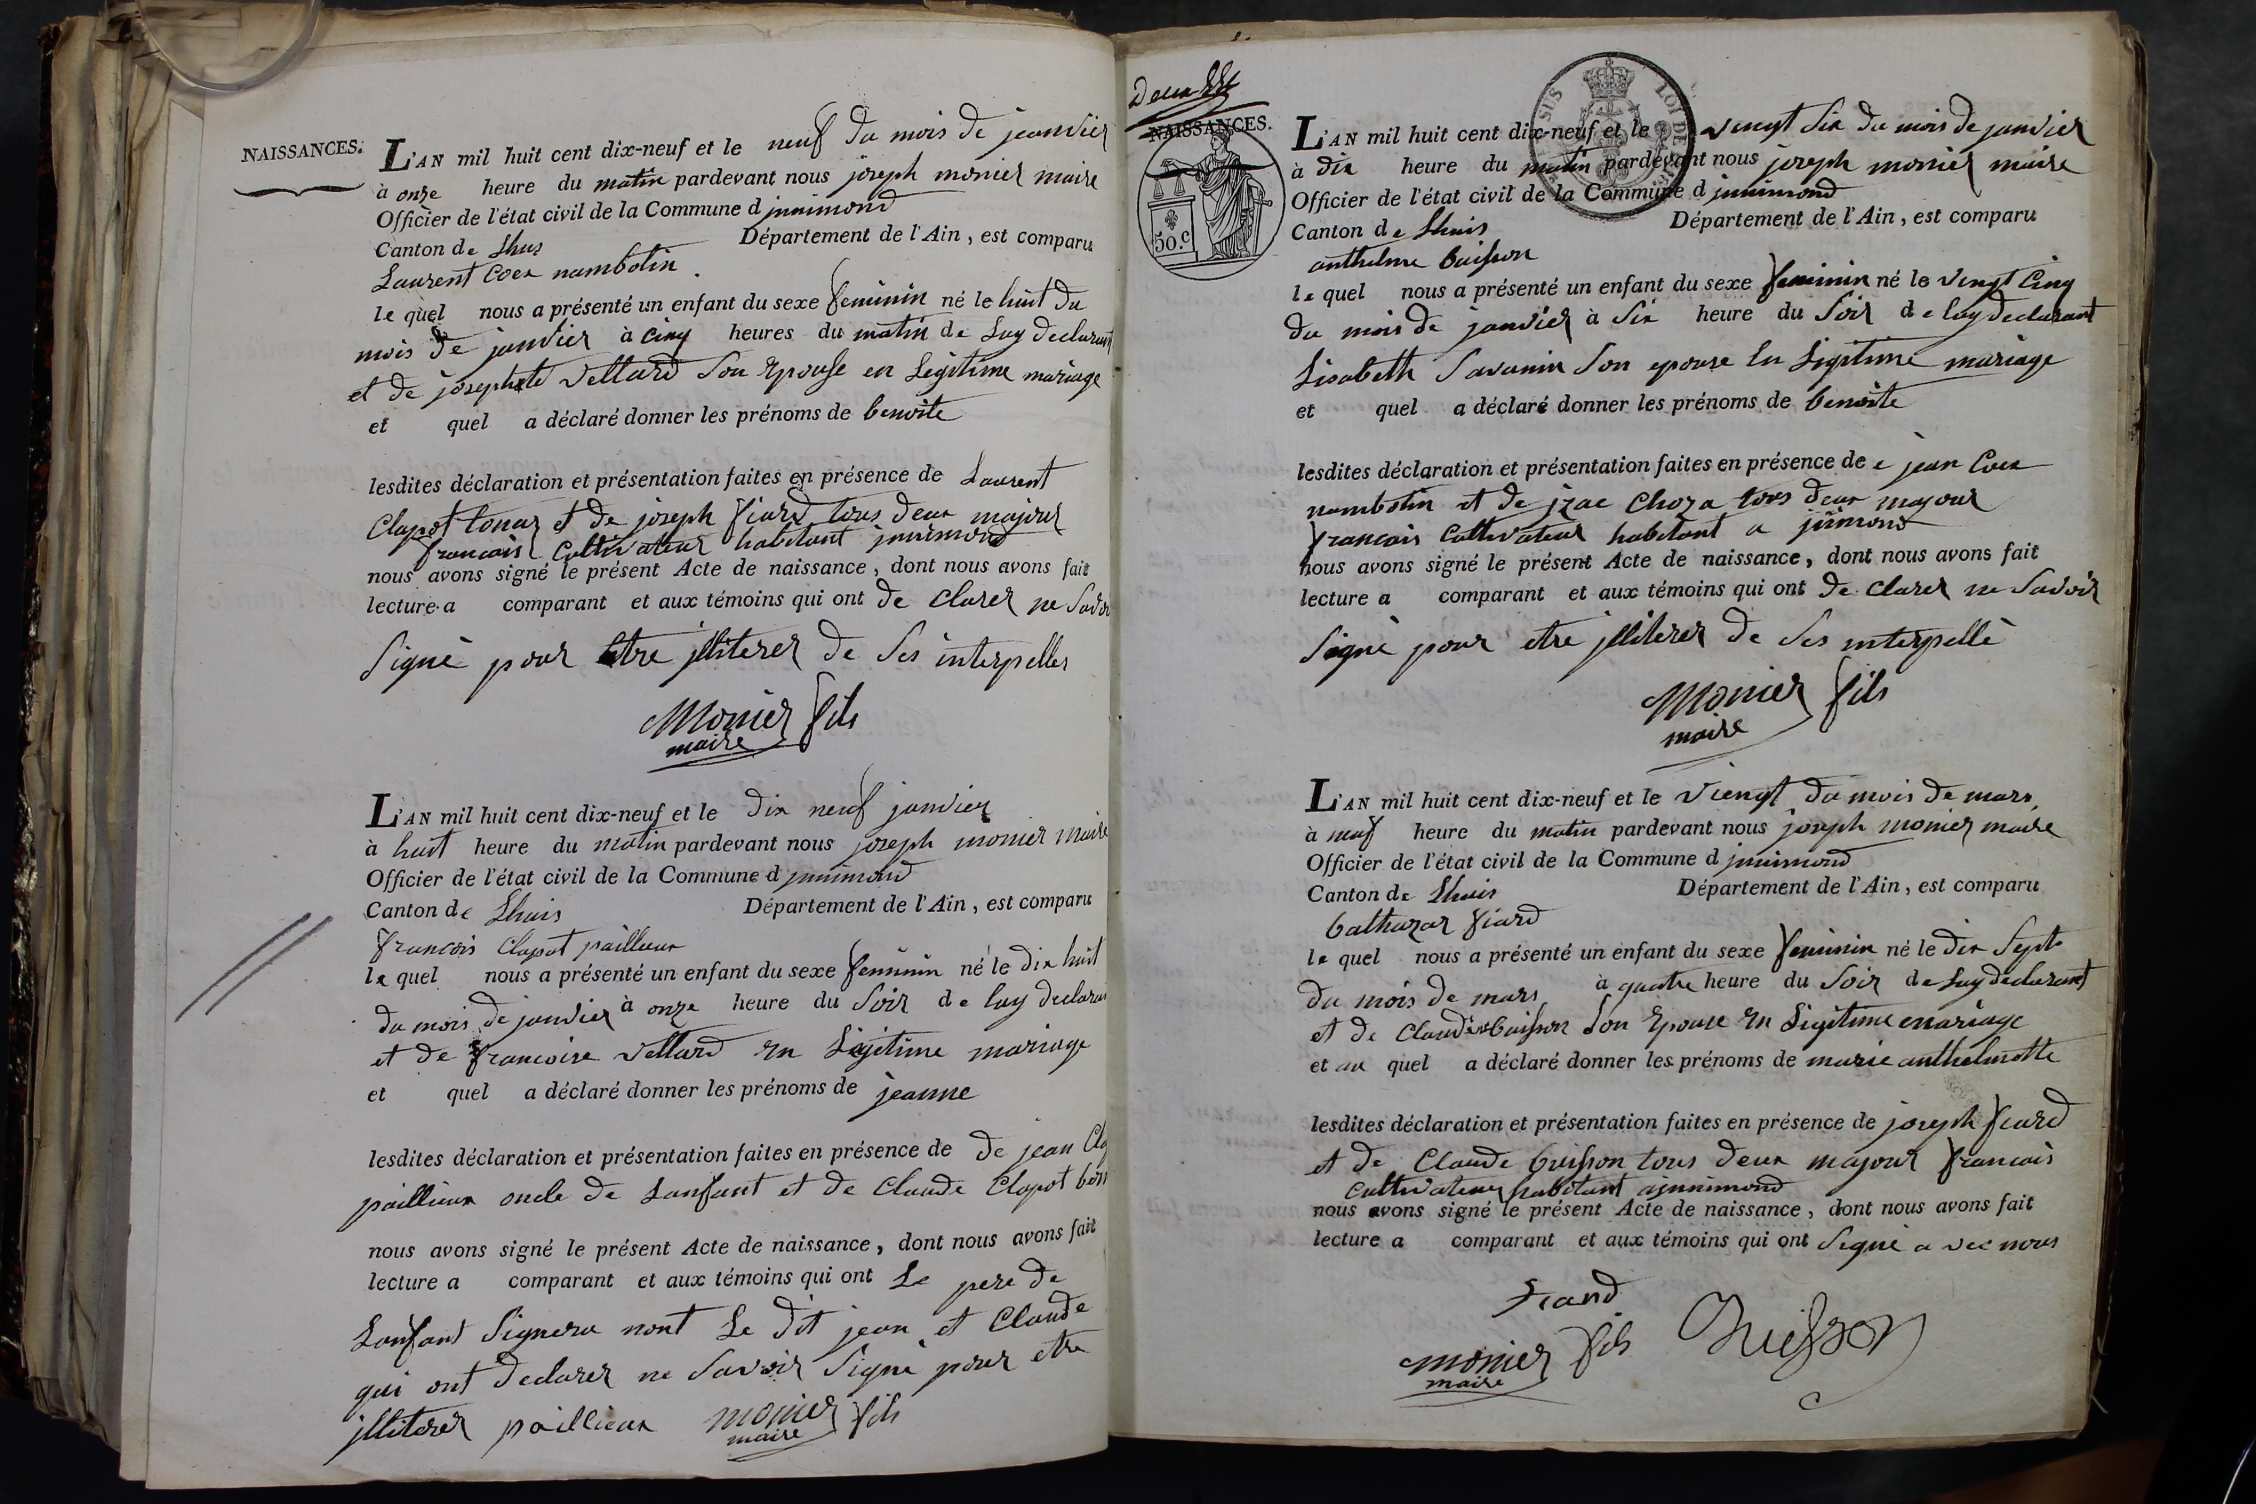 NAISSANCES.
L'AN mil huit cent dix-neuf et le neuf du mois de jeanvier
à onze heure du matin pardevant nous joseph monier maire
Officier de l'état civil de la Commune d jnnimond
Canton de Lhus Département de l'Ain, est comparu
Laurent Coex nambotin
le quel nous a présenté un enfant du sexe feminin né le huit du
mois de janvier à cinq heures du matin de Luy declarant
et de josephte Vellard Son Epouse en Legitime mariage
et quel a déclaré donner les prénoms de benoite
lesdites déclaration et présentation faites en présence de Laurent
Clapot tonar et de joseph fiard tous deux majour
francais Cultivateur habitant jnnimond
nous avons signé le présent Acte de naissance, dont nous avons fait
lecture a comparant et aux témoins qui ont de clarer ne
Signé pour Etre jlliterer de Ses interpelles
Monier fils
maire
L'AN mil huit cent dix-neuf et le dix neuf janvier
à huit heure du matin pardevant nous joseph monier maire
Officier de l'état civil de la Commune d jnnimond
Canton de Lhuis Département de l'Ain, est comparu
francois Clapot paillieux
le quel nous a présenté un enfant du sexe feminin né le dix huit
du mois de janvier à onze heure du Soir de luy
et de francoise Vellard En Legitime mariage
et quel a déclaré donner les prénoms de jeanne
lesdites déclaration et présentation faites en présence de de jean
paillieux oncle de Lanfant et de Claude Clapot
nous avons signé le présent Acte de naissance, dont nous avons fait
lecture a comparant et aux témoins qui ont Le pere de
Lanfant Signera nont Le dit jean et Claude
qui ont declarer ne Savoir Signé pour etre
jlliterer paillieux monier fils
maire
NAISSANCES.
50.c
L'AN mil huit cent dix-neuf et le vingt Six du mois de janvier
à dix heure du matin pardevant nous joseph monier maire
Officier de l'état civil de la Commune d jnnimond
Canton de Lhuis Département de l'Ain, est comparu
anthelme buisson
le quel nous a présenté un enfant du sexe feminin né le Vingt Cinq
du mois de janvier à Six heure du Soir de luy declarant
Lisabeth Savanin Son epouse En Legitime mariage
et quel a déclaré donner les prénoms de benoite
lesdites déclaration et présentation faites en présence de e jean Coex
nambotin et de jzac Choza tous deux majour
francais Cultivateur habitant a jnimond
nous avons signé le présent Acte de naissance, dont nous avons fait
lecture a comparant et aux témoins qui ont de clarer ne Savoir
Signé pour etre jlliterer de Ses interpellé
Monier fils
maire
L'AN mil huit cent dix-neuf et le viengt du mois de mars
à neuf heure du matin pardevant nous joseph monier maire
Officier de l'état civil de la Commune d jnnimond
Canton de Lhuis Département de l'Ain, est comparu
balthazar fiard
le quel nous a présenté un enfant du sexe feminin né le dix Sept
du mois de mars à quatre heure du Soir de Luy declarant
et de buisson Son Epouse En Legitime mariage
et au quel a déclaré donner les prénoms de marie anthelmette
lesdites déclaration et présentation faites en présence de joseph fiard
et de Claude buisson tous deux majour francais
Cultivateur habitant ajnnimond
nous avons signé le présent Acte de naissance, dont nous avons fait
lecture a comparant et aux témoins qui ont Signé a vec nous
fiard
monier fils Buisson
maire